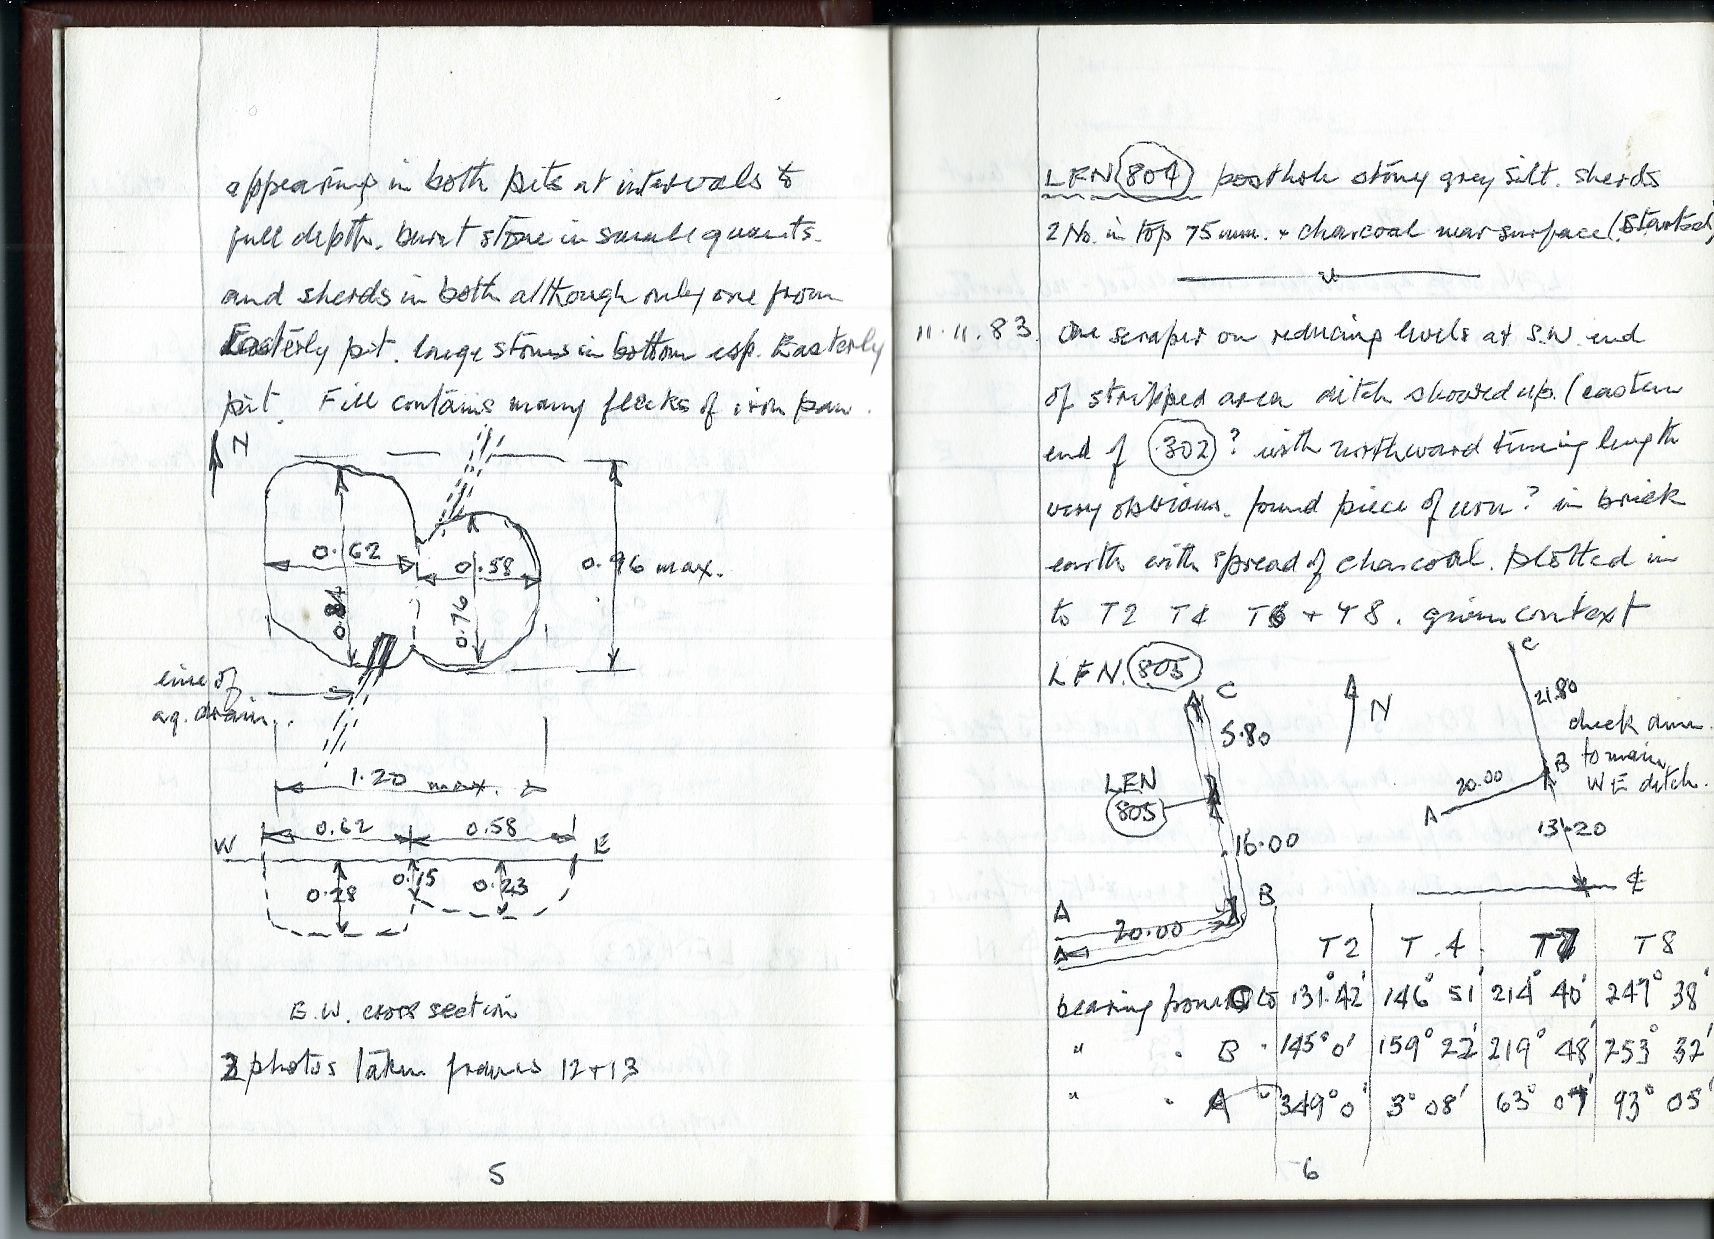 appearing in both pits at intervals to
full depth. burnt stone in small quants.
and sherds in both although only one from
Easterly pit. large stones in bottom esp. Easterly
pit. Fill contains many flecks of iron pan.
N
0.62
0.58
0.84
0.76
0.96 max.
line of
ag. drain.
1.20 max.
W 0.62 0.58 E
0.28 0.15 0.23
E.W. cross section
2 photos taken frames 12+13
5
LEN 804 posthole stoney grey silt. sherds
2 No. in top 75mm. + charcoal near surface (started)
11.11.83. One scraper on reducing levels at S.W. end
of stripped area ditch showed up. (eastern
end of 302? with northward turning length
very obvious. found piece of urn? in brick
earth with spread of charcoal. plotted in
to T2 T4 T6 + T8. given context
LEN. 805
C
5.80
N
LEN
805
16.00
A
20.00
B
C
21.80
check dim.
to main
WE ditch.
B
20.00
A
13.20
℄
T2 T.4 T7 T8
bearing from to 131°.42' 146° 51' 214° 40' 247° 38'
" " B 145° 0' 159° 22' 219° 48' 253° 32'
" " A 349° 0' 3° 08' 63° 07' 93° 05'
6